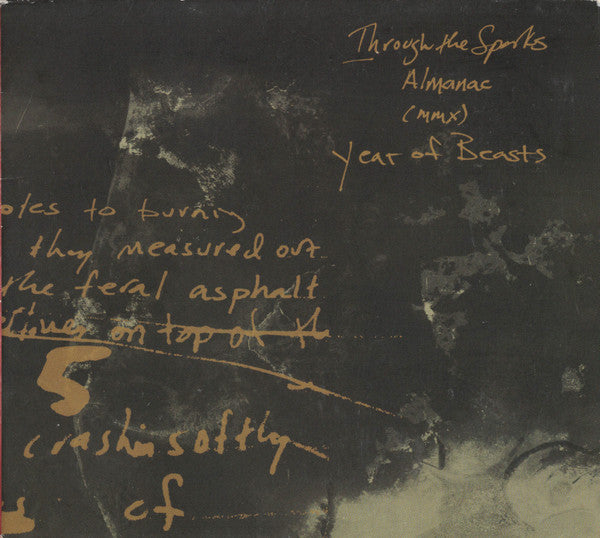 Through the Sparks
Almanac
(MMX)
Year of Beasts
otes to burning
they measured out
the feral asphalt
on top of th
5
crashin softly
of